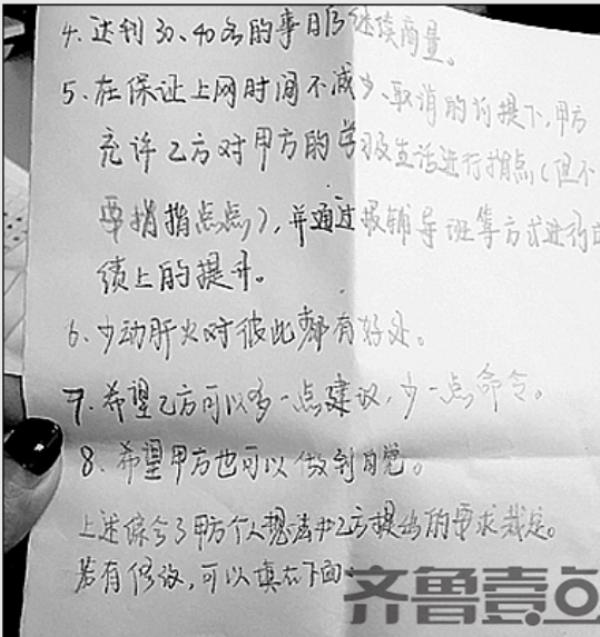 4. 达到30、40名的事日后继续商量。
5、在保证上网时间不减少、取消的前提下,甲方
允许乙方对甲方的学习及生活进行指点(但不
要指指点点),并通过报辅导班等方式进行成
绩上的提升。
6、少动肝火对彼此都有好处。
7、希望乙方可以多一点建议,少一点命令。
8、希望甲方也可以做到自觉。
上述综合了甲方个人想法和乙方提出的要求裁定。
若有修议,可以填在下面。
齐鲁壹点